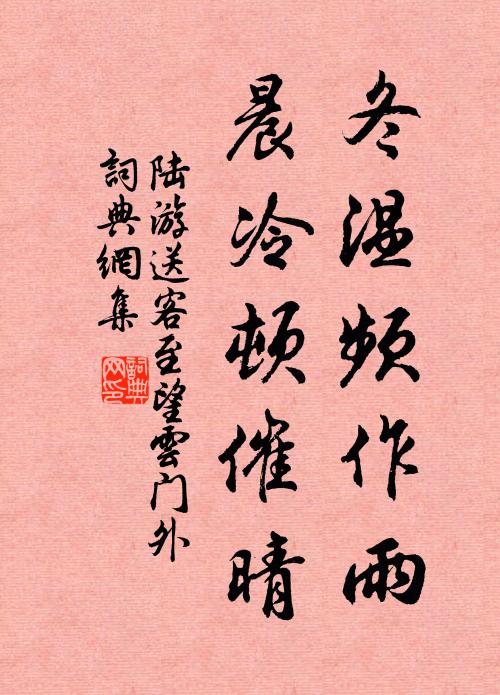 冬温頻作雨
晨冷頓催晴
陆游送客至望雲门外
詞典網集
詞典
网印